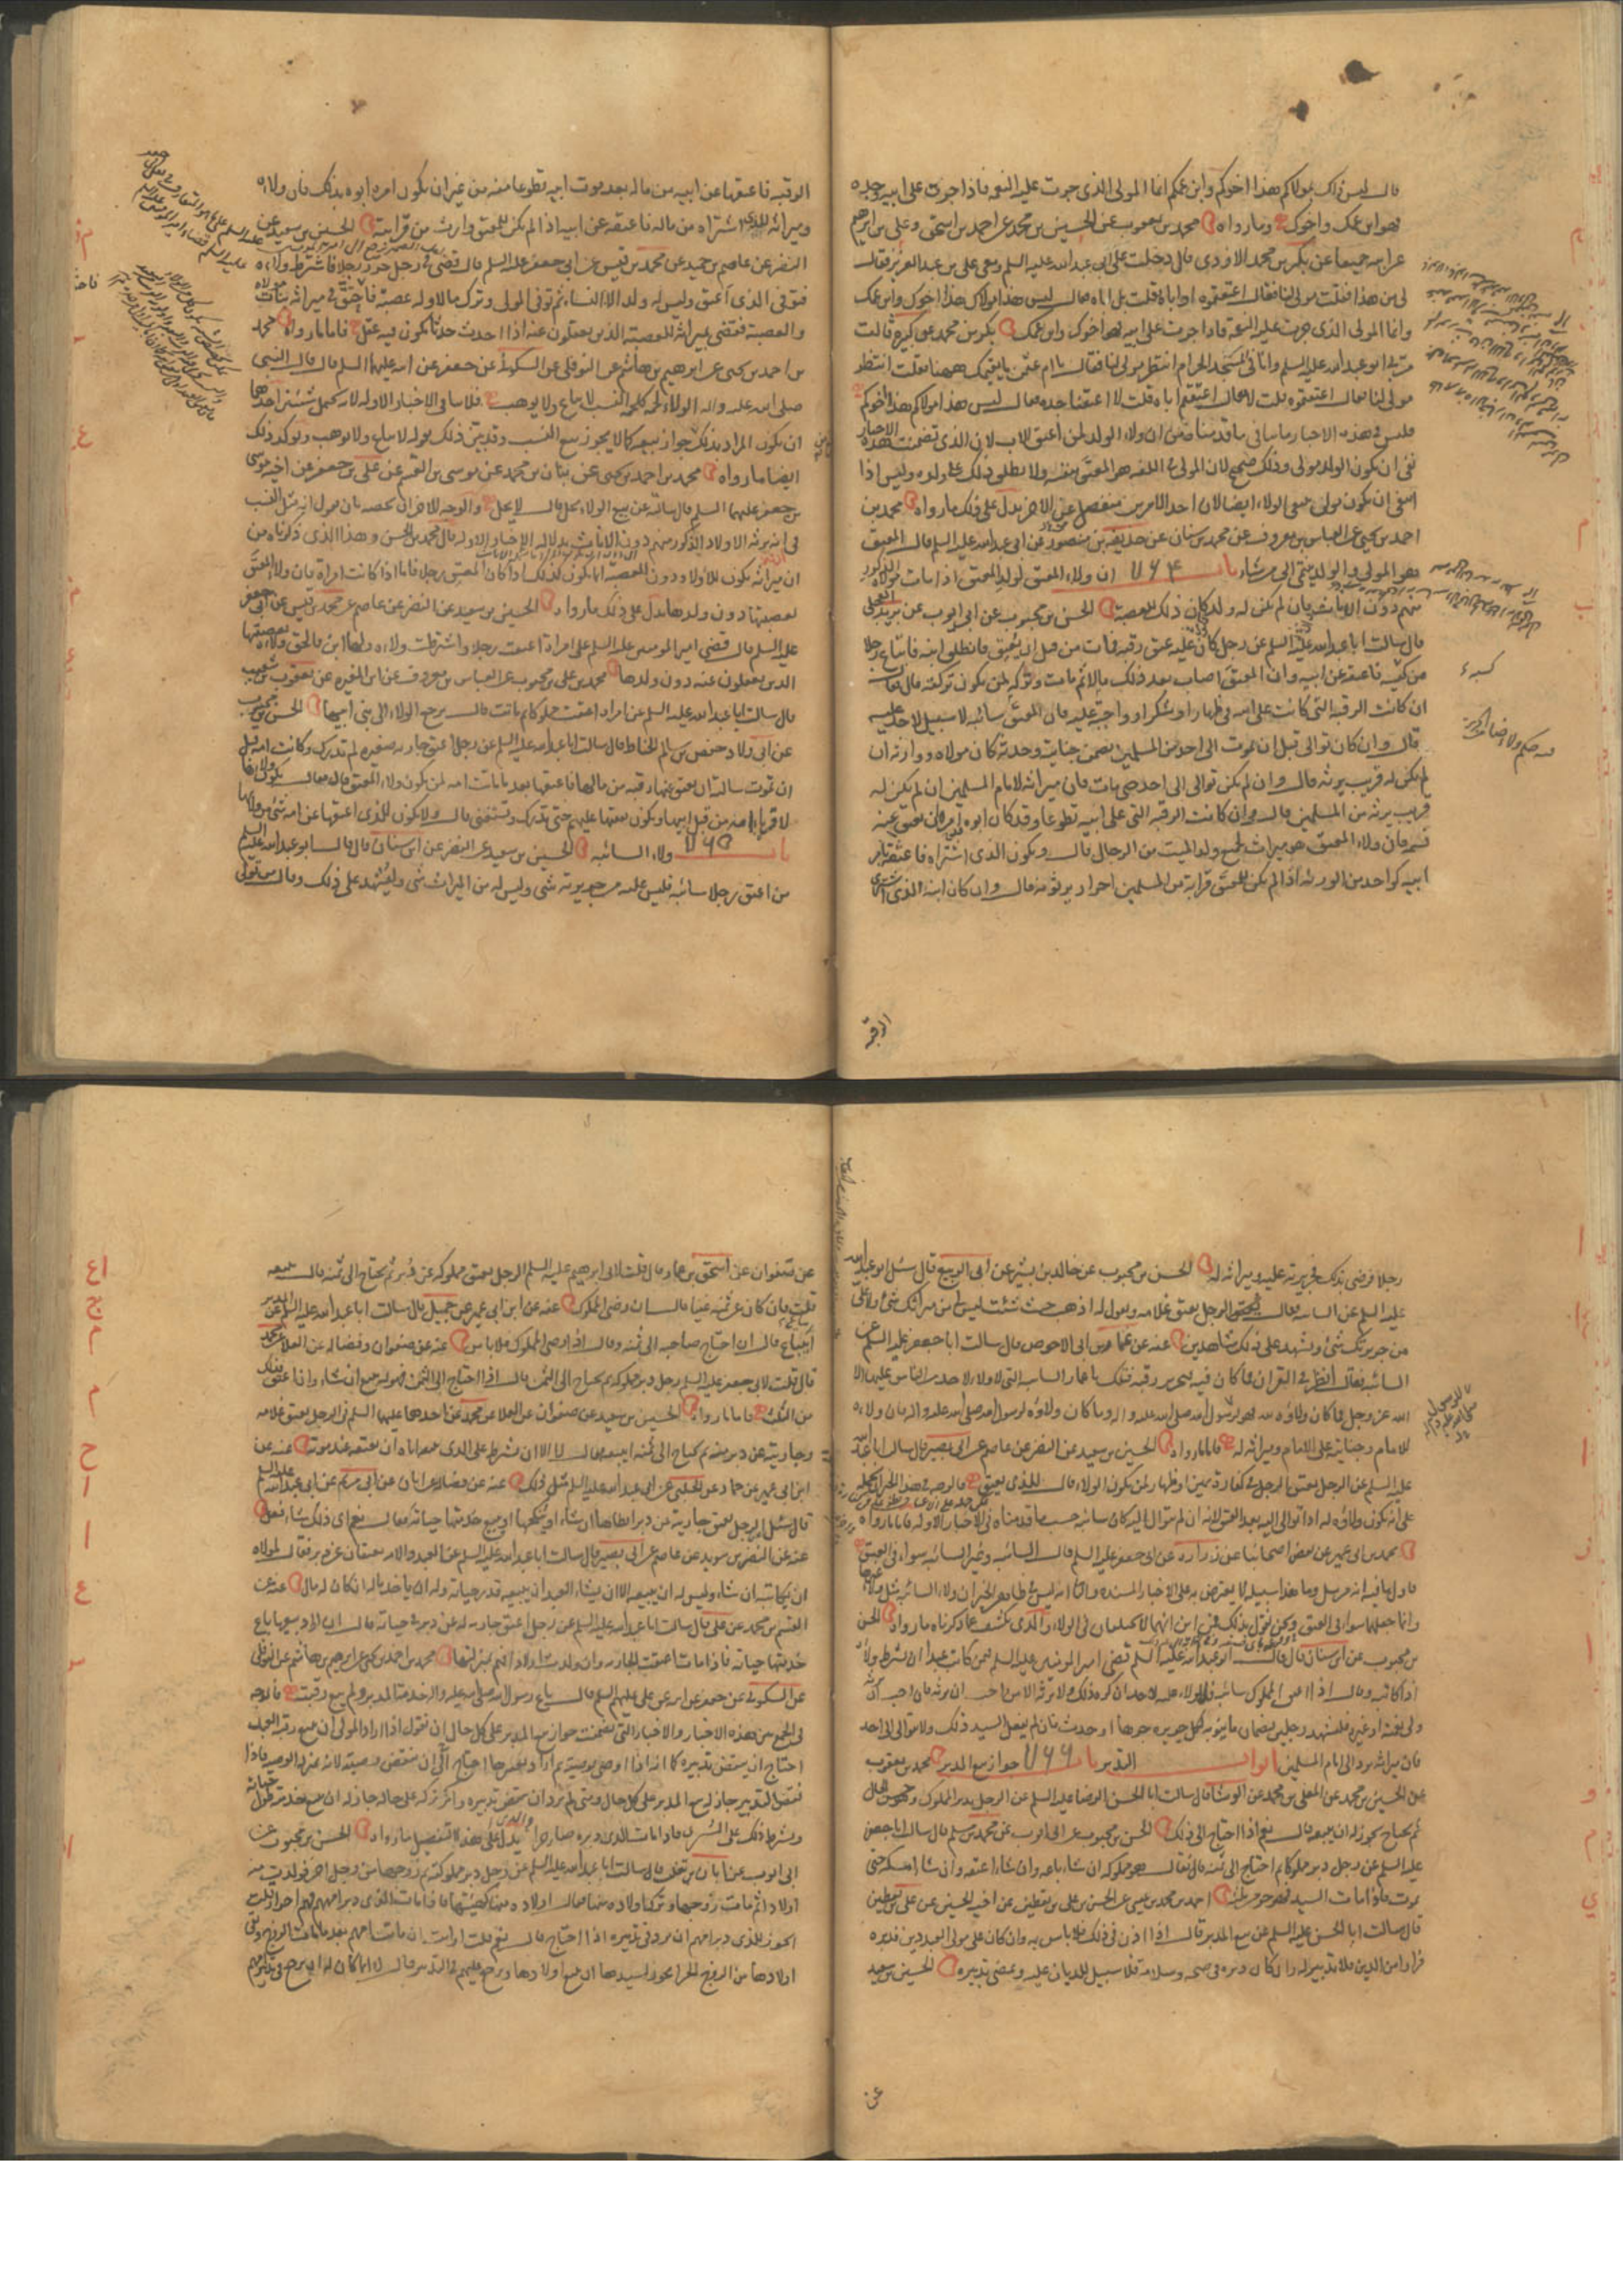 قال ليس ذلك بمولاكم هذا اخوكم وابن عمكم انما المولى الذى جرت عليه النعمة فاذا جرت على ابيه وجده
فهو ابن عمك واخوك وما رواه محمد بن يعقوب عن الحسين بن محمد عن احمد بن اسحق وعلى بن ابرهيم
عن ابيه جميعا عن بكر بن محمد الازدى قال دخلت على ابى عبد الله عليه السلم ومعى على بن عبد العزيز فقال
لى من هذا فقلت مولى لنا فقال اعتقتموه او اباه فقلت بل اباه فقال ليس هذا مولاك هذا اخوك وابن عمك
وانما المولى الذى جرت عليه النعمة فاذا جرت على ابيه فهو اخوك وابن عمك بكر بن محمد عن قالت
مر بى ابو عبد الله عليه السلم وانا فى المسجد الحرام انتظر مولى لنا فقال يا ام عثمن ما يقيمك ههنا فقلت انتظر
مولى لنا فقال اعتقتموه قلت لا فقال اعتقتم اباه قلت لا اعتقنا جده فقال ليس هذا مولاكم هذا اخوكم
فليس فى هذه الاخبار ما ينافى ما قدمناه من ان ولاء الولد لمن اعتق الاب لان الذى تضمنت هذه الاخبار
نفى ان يكون الولد مولى وذلك صحيح لان المولى فى اللغة هو المعتق نفسه ولا يطلق ذلك على ولده وليس اذا
انتفى ان يكون مولى ينتفى الولاء ايضا لان احد الامرين منفصل عن الاخر يدل على ذلك ما رواه محمد بن
احمد بن يحيى عن العباس بن معروف عن محمد بن سنان عن حذيفة بن منصور عن ابى عبد الله عليه السلم قال المعتق
هو المولى والولد ينتمى الى من شاء باب ٧٦٤ ان ولاء المعتق لولد المعتق اذا مات مولاه الذكور
منهم دون الاناث فان لم يكن له ولد كان ذلك للعصبة الحسن بن محبوب عن ابى ايوب عن بريد العجلى
قال سالت ابا عبد الله عليه السلم عن رجل كان عليه عتق رقبة فمات من قبل ان يعتق فانطلق ابنه فابتاع رجلا
من كسبه فاعتقه عن ابيه وان المعتق اصاب بعد ذلك مالا ثم مات وتركه لمن يكون تركته قال فقال
ان كانت الرقبة التى كانت على ابيه فى ظهار او شكر او واجبة عليه فان المعتق سائبة لا سبيل لاحد عليه
قال وان كان توالى قبل ان يموت الى احد من المسلمين يضمن جنايته وحدثه كان مولاه ووارثه ان
لم يكن له قريب يرثه قال وان لم يكن توالى الى احد حتى مات فان ميراثه لامام المسلمين ان لم يكن له
قريب يرثه من المسلمين قال وان كانت الرقبة التى على ابيه تطوعا وقد كان ابوه امره ان يعتق عنه
نسمة فان ولاء المعتق هو ميراث لجميع ولد الميت من الرجال قال ويكون الذى اشتراه فاعتقه بامر
ابيه كواحد من الورثة اذا لم يكن للمعتق قرابة من المسلمين احرار يرثونه قال وان كان ابنه الذى اشترى
الرقبة
الرقبة فاعتقها عن ابيه من ماله بعد موت ابيه تطوعا منه من غير ان يكون امره ابوه بذلك فان ولاءه
وميراثه للذى اشتراه من ماله فاعتقه عن ابيه اذا لم يكن للمعتق وارث من قرابته الحسين بن سعيد عن
النضر عن عاصم بن حميد عن محمد بن قيس عن ابى جعفر عليه السلم قال قضى فى رجل حرر رجلا فاشترط ولاءه
فتوفى الذى اعتق وليس له ولد الا النساء ثم توفى المولى وترك مالا وله عصبة فاحتق فى ميراثه بنات مولاه
والعصبة فقضى بميراثه للعصبة الذين يعقلون عنه اذا احدث حدثا يكون فيه عقل فاما ما رواه محمد
بن احمد بن يحيى عن ابرهيم بن هاشم عن النوفلى عن السكونى عن جعفر عن ابيه عليهما السلم قال قال النبى
صلى الله عليه واله الولاء لحمة كلحمة النسب لا يباع ولا يوهب فلا ينافى الاخبار الاولة لانه يحتمل شيئين احدهما
ان يكون المراد بذلك جواز بيعه كما لا يجوز بيع النسب وقد بين ذلك بقوله لا يباع ولا يوهب ويؤكد ذلك
ايضا ما رواه محمد بن احمد بن يحيى عن بنان بن محمد عن موسى بن القسم عن على بن جعفر عن اخيه موسى
بن جعفر عليهما السلم قال سالته عن بيع الولاء يحل قال لا يحل والوجه الاخر ان نخصه بان نقول انه مثل النسب
فى انه يرثه الاولاد الذكور منهم دون الاناث بدلالة الاخبار الاولة قال محمد بن الحسن وهذا الذى ذكرناه من
ان ميراثه يكون للاولاد دون العصبة انما يكون كذلك اذا كان المعتق رجلا فاما اذا كانت امراة فان ولاء المعتق
لعصبتها دون ولدها يدل على ذلك ما رواه الحسين بن سعيد عن النضر عن عاصم عن محمد بن قيس عن ابى جعفر
عليه السلم قال قضى امير المومنين عليه السلم على امراة اعتقت رجلا واشترطت ولاءه ولها ابن فالحق ولاءه بعصبتها
الذين يعقلون عنه دون ولدها محمد بن على بن محبوب عن العباس بن معروف عن ابن المغيرة عن يعقوب بن شعيب
قال سالت ابا عبد الله عليه السلم عن امراة اعتقت مملوكا ثم ماتت قال يرجع الولاء الى بنى ابيها الحسن بن محبوب
عن ابى ولاد حفص بن سالم الحناط قال سالت ابا عبد الله عليه السلم عن رجل اعتق جارية صغيرة لم تدرك وكانت امه قبل
ان تموت سالته ان يعتق عنها رقبة من مالها فاعتقها بعد ما ماتت امه لمن يكون ولاء المعتق قال فقال يكون ولاؤها
لاقرباء امه من قبل ابيها ويكون نفقتها عليهم حتى تدرك وتستغنى قال ولا يكون للذى اعتقها عن امه شىء من ولائها
باب ٧٦٥ ولاء السائبة الحسين بن سعيد عن النضر عن ابن سنان قال قال ابو عبد الله عليه السلم
من اعتق رجلا سائبة فليس عليه من جريرته شىء وليس له من الميراث شىء وليشهد على ذلك وقال من تولى
رجلا فرضى بذلك فجريرته عليه وميراثه له الحسن بن محبوب عن خالد بن بشير عن ابى الربيع قال سئل ابو عبد الله
عليه السلم عن السائبة فقال الرجل يعتق غلامه ويقول له اذهب حيث شئت ليس لى من ميراثك شىء ولا على
من جريرتك شىء ويشهد على ذلك شاهدين عنه عن عمار بن ابى الاحوص قال سالت ابا جعفر عليه السلم عن
السائبة فقال انظر فى القران فما كان فيه تحرير رقبة فتلك يا عمار السائبة التى لا ولاء لاحد من الناس عليها الا
الله عز وجل فما كان ولاؤه لله فهو لرسول الله صلى الله عليه واله وما كان ولاؤه لرسول الله صلى الله عليه واله فان ولاءه
للامام وجنايته على الامام وميراثه له فاما ما رواه الحسين بن سعيد عن النضر عن عاصم عن ابى بصير قال سالت ابا عبد الله
عليه السلم عن الرجل يعتق الرجل فى كفارة يمين او ظهار لمن يكون الولاء قال للذى يعتق فالوجه فى هذا الخبر ان نحمله
على انه يكون ولاؤه له اذا توالى اليه بعد العتق لانه ان لم يتوال اليه كان سائبة حسب ما قدمناه فى الاخبار الاولة فاما ما رواه
محمد بن ابى عمير عن بعض اصحابنا عن زرارة عن ابى جعفر عليه السلم قال السائبة وغير السائبة سواء فى العتق
فاول ما فيه انه مرسل وما هذا سبيله لا يعترض به على الاخبار المسندة وايضا انه ليس فى ظاهر الخبر ان ولاء السائبة مثل ولاء غيرها
وانما جعلهما سواء فى العتق ونحن نقول بذلك فمن اين انهما لا يختلفان فى الولاء والذى يكشف عما ذكرناه ما رواه الحسن
بن محبوب عن ابن سنان قال قال ابو عبد الله عليه السلم قضى امير المومنين عليه السلم فيمن كاتب عبدا ان يشترط ولاءه
اذا كاتبه وقال اذا اعتق المملوك سائبة فلا ولاء عليه لاحد ان كره ذلك ولا يرثه الا من احب ان يرثه فان احب ان يرثه
ولى نعمته او غيره فليشهد رجلين بضمان ما ينوبه لكل جريرة جرها او حدث فان لم يفعل السيد ذلك ولا توالى الى احد
فان ميراثه يرد الى امام المسلمين ابواب التدبير باب ٧٦٦ جواز بيع المدبر محمد بن يعقوب
عن الحسين بن محمد عن المعلى بن محمد عن الوشاء قال سالت ابا الحسن الرضا عليه السلم عن الرجل يدبر المملوك وهو حسن الحال
ثم يحتاج يجوز له ان يبيعه قال نعم اذا احتاج الى ذلك الحسن بن محبوب عن ابى ايوب عن محمد بن مسلم قال سالت ابا جعفر
عليه السلم عن رجل دبر مملوكا ثم احتاج الى ثمنه قال فقال هو مملوكه ان شاء باعه وان شاء اعتقه وان شاء امسكه حتى
يموت فاذا مات السيد فهو حر من ثلثه احمد بن محمد بن عيسى عن الحسن بن على بن يقطين عن اخيه الحسين عن على بن يقطين
قال سالت ابا الحسن عليه السلم عن بيع المدبر قال اذا اذن فى ذلك فلا باس به وان كان على مولى العبد دين فدبره
فرارا من الدين فلا تدبير له وان كان دبره فى صحة وسلامة فلا سبيل للديان عليه ويمضى تدبيره الحسين بن سعيد
عن
عن صفوان عن اسحق بن عمار قال قلت لابى ابرهيم عليه السلم الرجل يعتق مملوكه عن دبر ثم يحتاج الى ثمنه قال يبيعه
قلت فان كان عن ثمنه غنيا قال ان رضى المملوك عنه عن ابن ابى عمير عن جميل قال سالت ابا عبد الله عليه السلم عن المدبر
ايباع قال ان احتاج صاحبه الى ثمنه وقال اذا رضى المملوك فلا باس عنه عن صفوان وفضالة عن العلا عن محمد
قال قلت لابى جعفر عليه السلم رجل دبر مملوكه ثم يحتاج الى الثمن قال اذا احتاج الى الثمن فهو له يبيع ان شاء وان اعتق فذلك
من الثلث فاما ما رواه الحسين بن سعيد عن صفوان عن العلا عن محمد عن احدهما عليهما السلم فى الرجل يعتق غلامه
وجاريته عن دبر منه ثم يحتاج الى ثمنه ايبيعه قال لا الا ان يشترط على الذى يبيعه اياه ان يعتقه عند موته عنه عن
ابن ابى عمير عن حماد عن الحلبى عن ابى عبد الله عليه السلم مثل ذلك عنه عن فضالة عن ابان عن ابى مريم عن ابى عبد الله عليه السلم
قال سئل الرجل يعتق جاريته عن دبر ايطاها ان شاء او ينكحها او يبيع خدمتها حياته فقال نعم اى ذلك شاء فعل
عنه عن النضر بن سويد عن عاصم عن ابى بصير قال سالت ابا عبد الله عليه السلم عن العبد والامة يعتقان عن دبر فقال لمولاه
ان يكاتبه ان شاء وليس له ان يبيعه الا ان يشاء العبد ان يبيعه قدر حياته وله ان ياخذ ماله ان كان له مال عنه عن
القسم بن محمد عن على قال سالت ابا عبد الله عليه السلم عن رجل اعتق جارية له عن دبر فى حياته قال ان اراد بيعها باع
خدمتها حياته فاذا مات اعتقت الجارية وان ولدت اولادا فهم بمنزلتها محمد بن احمد بن يحيى عن ابرهيم بن هاشم عن النوفلى
عن السكونى عن جعفر عن ابيه عن على عليهم السلم قال باع رسول الله صلى الله عليه واله خدمة المدبر ولم يبع رقبته فالوجه
فى الجمع بين هذه الاخبار والاخبار التى تضمنت جواز بيع المدبر على كل حال ان نقول اذا اراد المولى ان يبيع رقبة العبد
احتاج ان ينقض تدبيره كما انه اذا اوصى بوصية ثم اراد تغييرها احتاج الى ان ينقض وصيته لانه بمنزلة الوصية فاذا
نقض التدبير جاز له بيع المدبر على كل حال ومتى لم يرد ان ينقض تدبيره واثر تركه على حاله جاز له ان يبيع خدمته طول حياته
ويشرط ذلك على المشترى فاذا مات الذى دبره صار حرا والذى يدل على هذا التفصيل ما رواه الحسن بن محبوب عن
ابى ايوب عن ابان بن تغلب قال سالت ابا عبد الله عليه السلم عن رجل دبر مملوكته ثم زوجها من رجل اخر فولدت منه
اولادا ثم مات زوجها وترك اولاده منها فقال اولاده منها كهيئتها فاذا مات الذى دبر امهم فهم احرار قلت
ايجوز للذى دبر امهم ان يرد فى تدبيره اذا احتاج قال نعم قلت ارايت ان ماتت امهم بعد ما مات الزوج وبقى
اولادها من الزوج الحر ايجوز لسيدها ان يبيع اولادها ويرجع عليهم فى التدبير قال لا انما كان له ان يرجع فى تدبير امهم